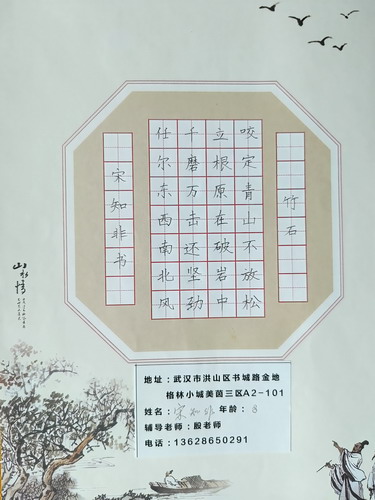 竹石
咬定青山不放松
立根原在破岩中
千磨万击还坚劲
任尔东西南北风
宋知非书
山水情
地址：武汉市洪山区书城路金地
格林小城美茵三区A2-101
姓名：宋知非 年龄：8
辅导老师：殷老师
电话：13628650291